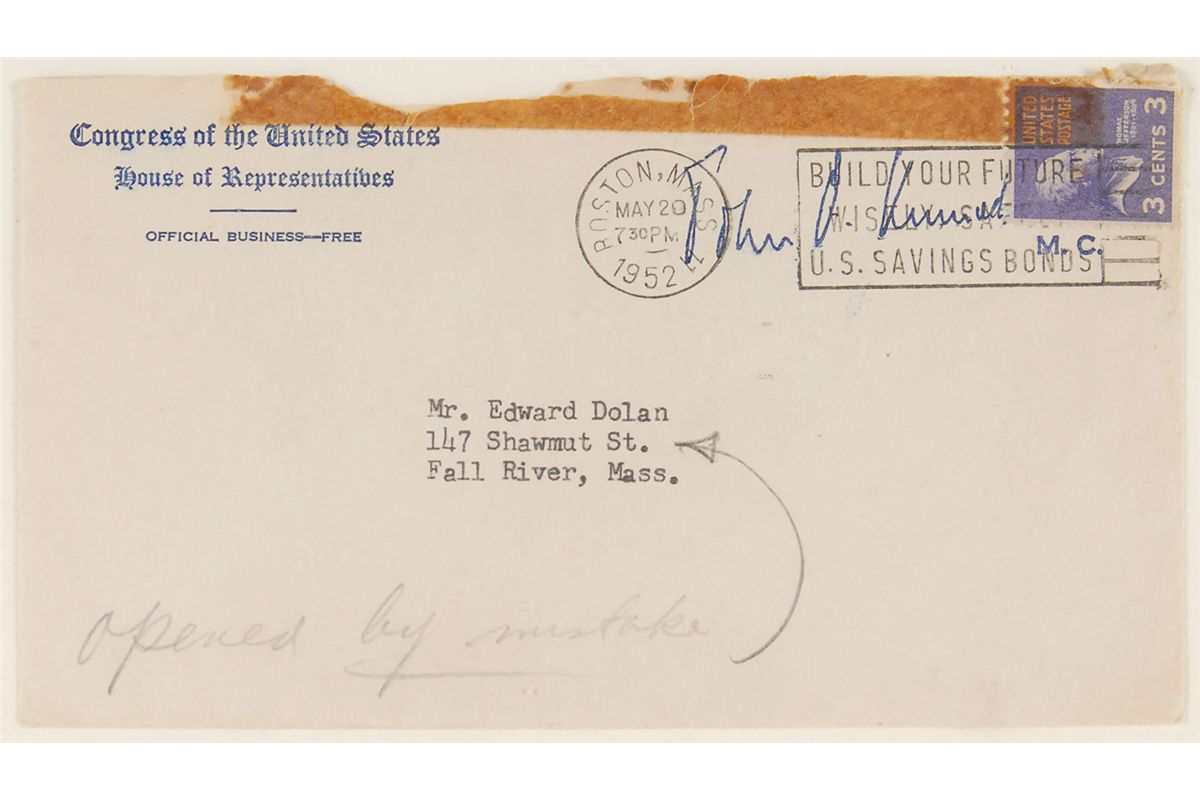 Congress of the United States
House of Representatives
OFFICIAL BUSINESS—FREE
BOSTON, MASS.
MAY 20
7 30 PM
1952
11
John
M. C.
BUILD YOUR FUTURE
WISELY, SAFELY
U.S. SAVINGS BONDS
UNITED
STATES
POSTAGE
THOMAS
JEFFERSON
3 CENTS 3
Mr. Edward Dolan
147 Shawmut St.
Fall River, Mass.
opened by mistake